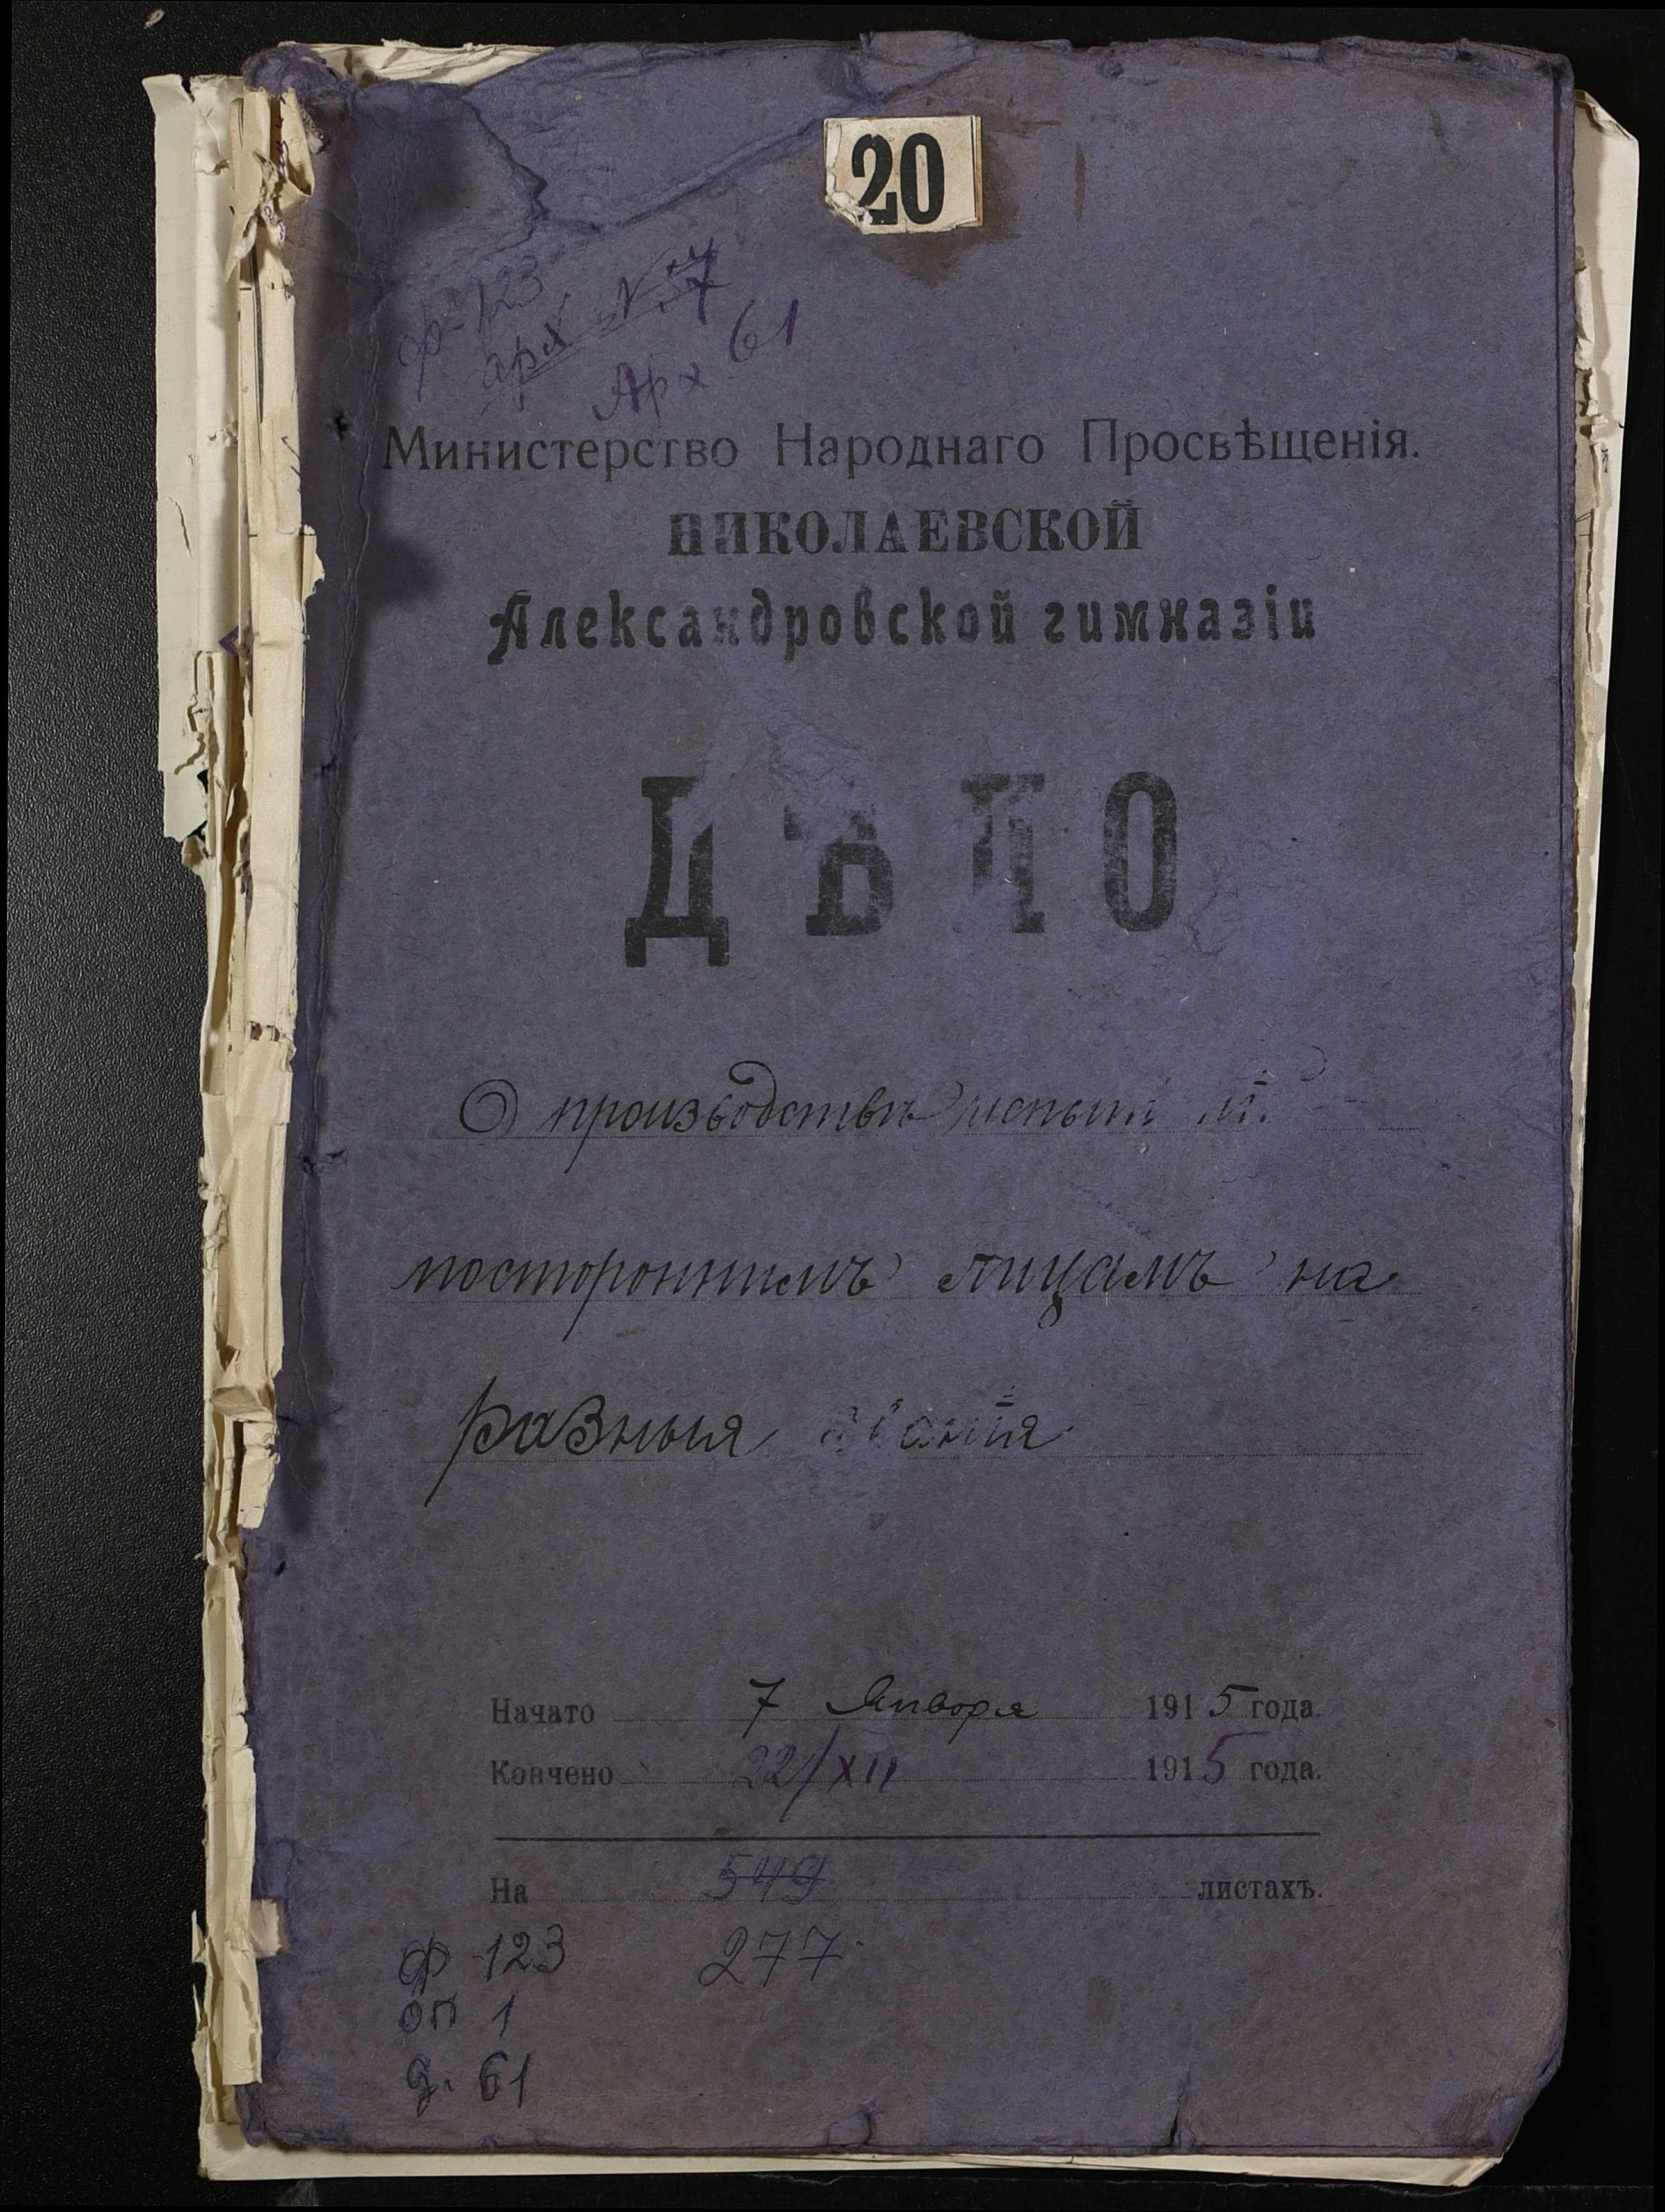 20
ф-123
арх № 7
Арх 61
Министерство Народнаго Просвѣщенія.
НИКОЛАЕВСКОЙ
Александровской гимназіи
ДѢЛО
О производствѣ
постороннимъ лицамъ на
разныя званія
Начато 7 Января 1915 года.
Кончено 22/XII 1915 года.
На 549 листахъ.
ф-123 277
оп 1
д. 61